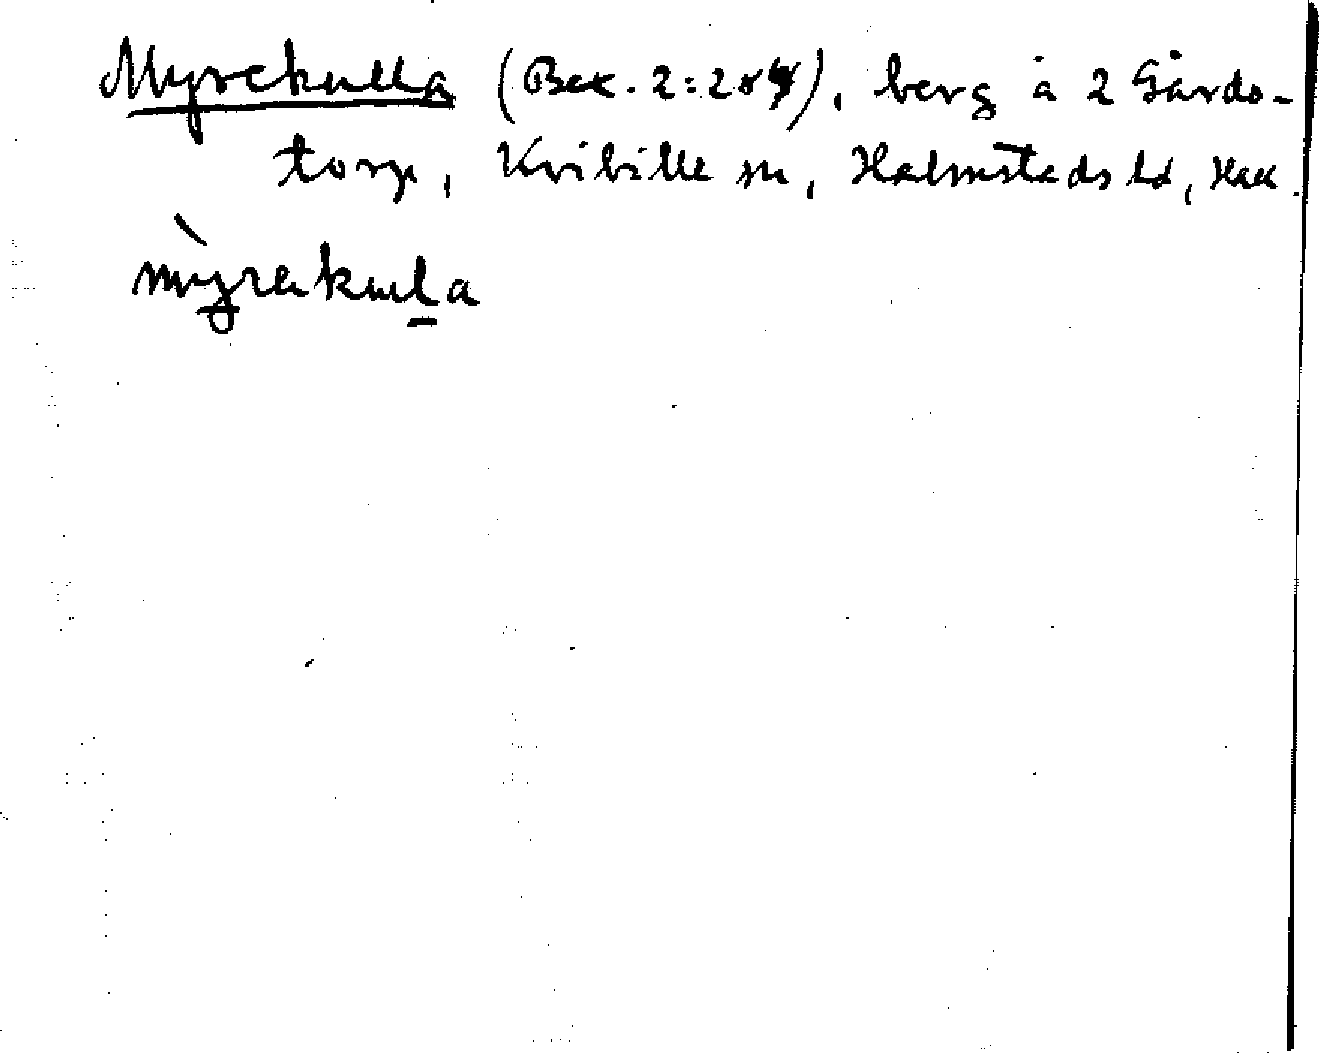 Myrekulla (Bex. 2:284), berg å 2 Gårds-
torp, Kvibille sn, Halmstads hd, Hall.
myrakula